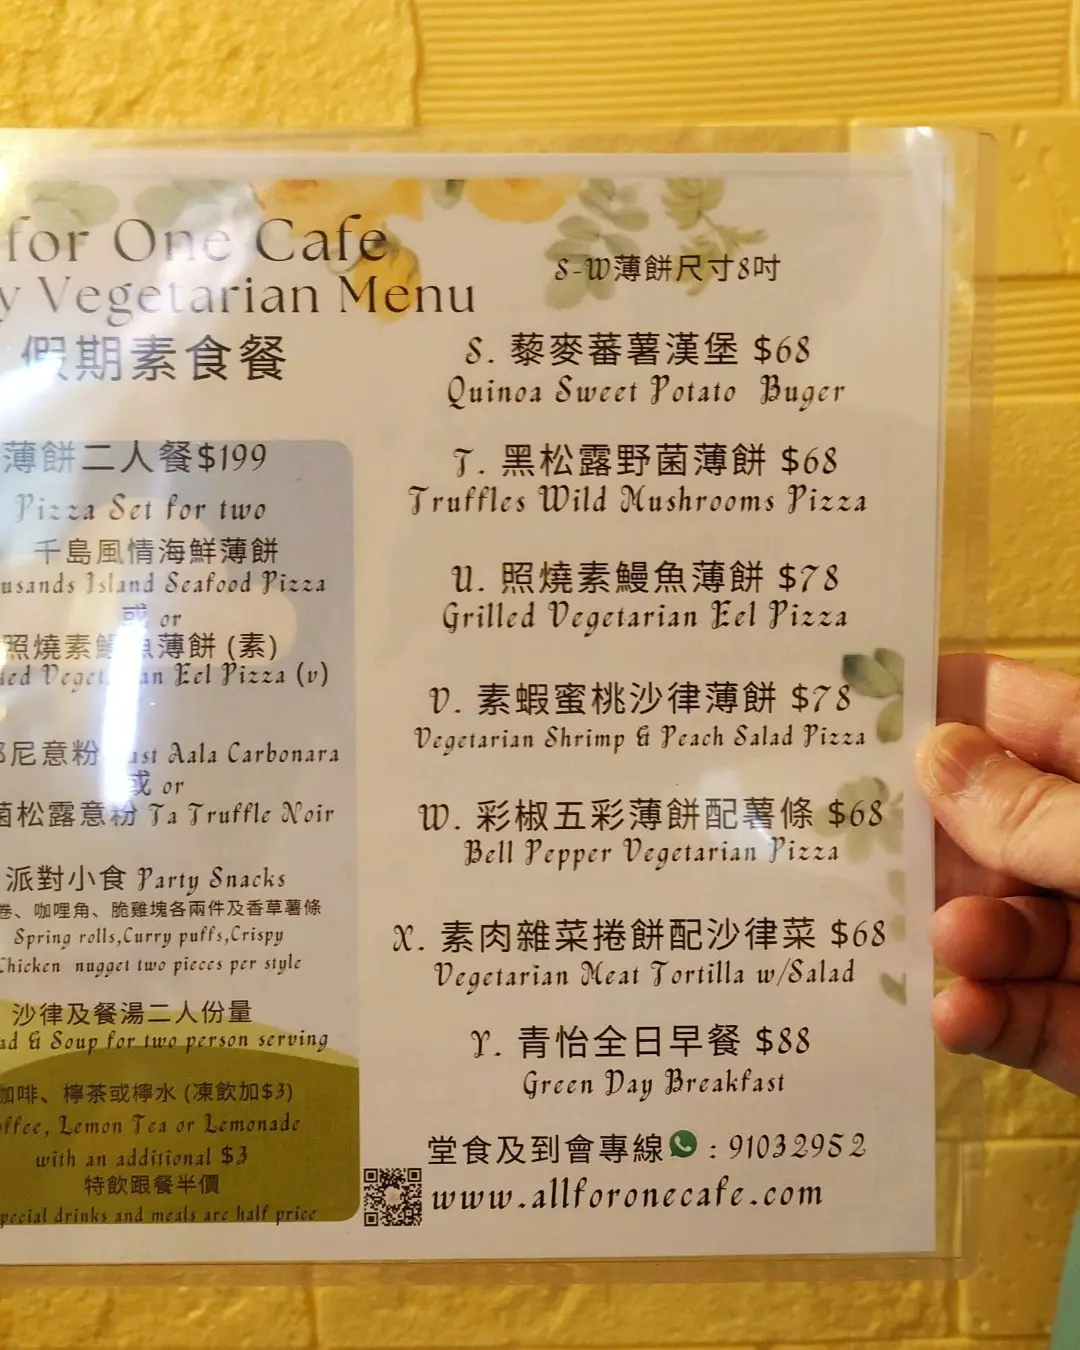 for One Cafe
y Vegetarian Menu
假期素食餐
薄餅二人餐$199
Pizza Set for two
千島風情海鮮薄餅
usands Island Seafood Pizza
或 or
照燒素鰻魚薄餅 (素)
Eel Pizza (v)
尼意粉 Aala Carbonara
或 or
菌松露意粉 Ta Truffle Noir
派對小食 Party Snacks
卷、咖哩角、脆雞塊各兩件及香草薯條
Spring rolls,Curry puffs,Crispy
Chicken nugget two pieces per style
沙律及餐湯二人份量
ad & Soup for two person serving
咖啡、檸茶或檸水 (凍飲加$3)
offee, Lemon Tea or Lemonade
with an additional $3
特飲跟餐半價
pecial drinks and meals are half price
S-W薄餅尺寸8吋
S. 藜麥蕃薯漢堡 $68
Quinoa Sweet Potato Buger
T. 黑松露野菌薄餅 $68
Truffles Wild Mushrooms Pizza
U. 照燒素鰻魚薄餅 $78
Grilled Vegetarian Eel Pizza
V. 素蝦蜜桃沙律薄餅 $78
Vegetarian Shrimp & Peach Salad Pizza
W. 彩椒五彩薄餅配薯條 $68
Bell Pepper Vegetarian Pizza
X. 素肉雜菜捲餅配沙律菜 $68
Vegetarian Meat Tortilla w/Salad
Y. 青怡全日早餐 $88
Green Day Breakfast
堂食及到會專線 : 91032952
www.allforonecafe.com